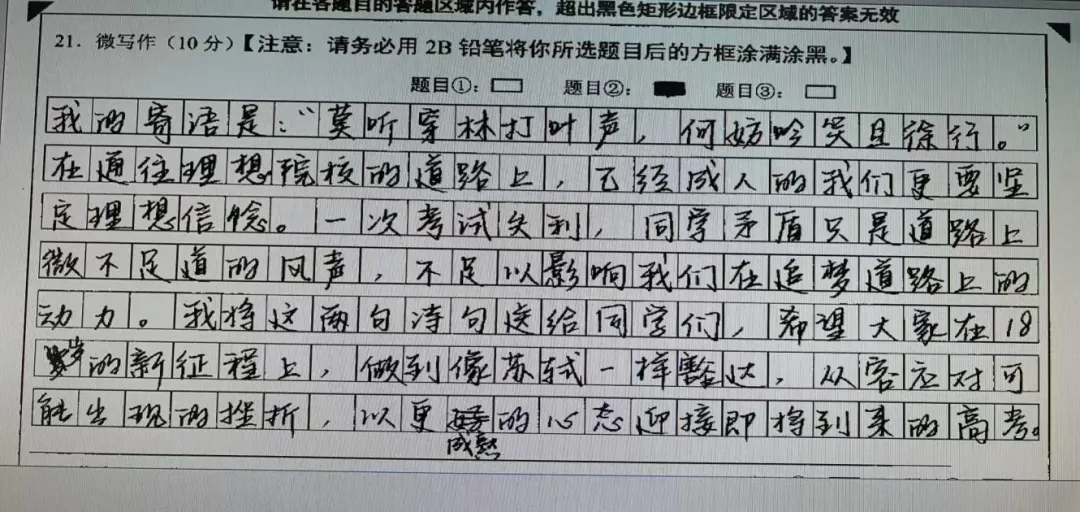 请在各题目的答题区域内作答，超出黑色矩形边框限定区域的答案无效
21. 微写作（10 分）【注意：请务必用 2B 铅笔将你所选题目后的方框涂满涂黑。】
题目①： 题目②： 题目③：
我的寄语是：“莫听穿林打叶声，何妨吟笑且徐行。”
在通往理想院校的道路上，已经成人的我们更要坚
定理想信念。一次考试失利，同学矛盾只是道路上
微不足道的风声，不足以影响我们在追梦道路上的
动力。我将这两句诗句送给同学们，希望大家在18
岁的新征程上，做到像苏轼一样豁达，从容应对可
能出现的挫折，以更的心态迎接即将到来的高考。
成熟